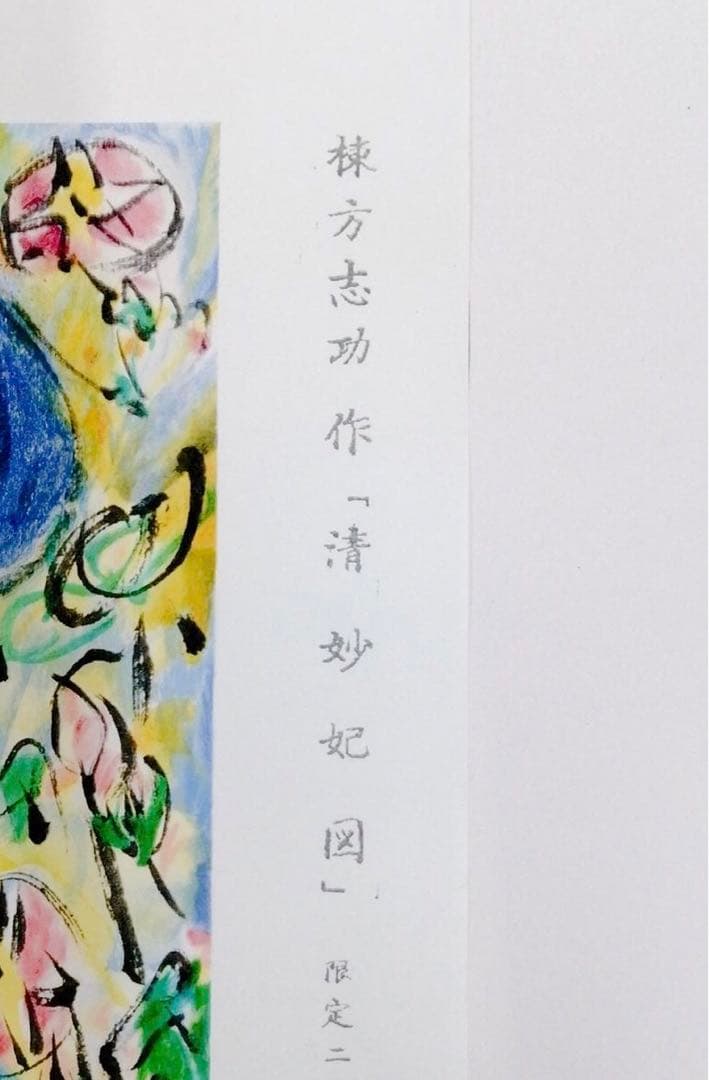 棟方志功作「清妙妃図」限定二